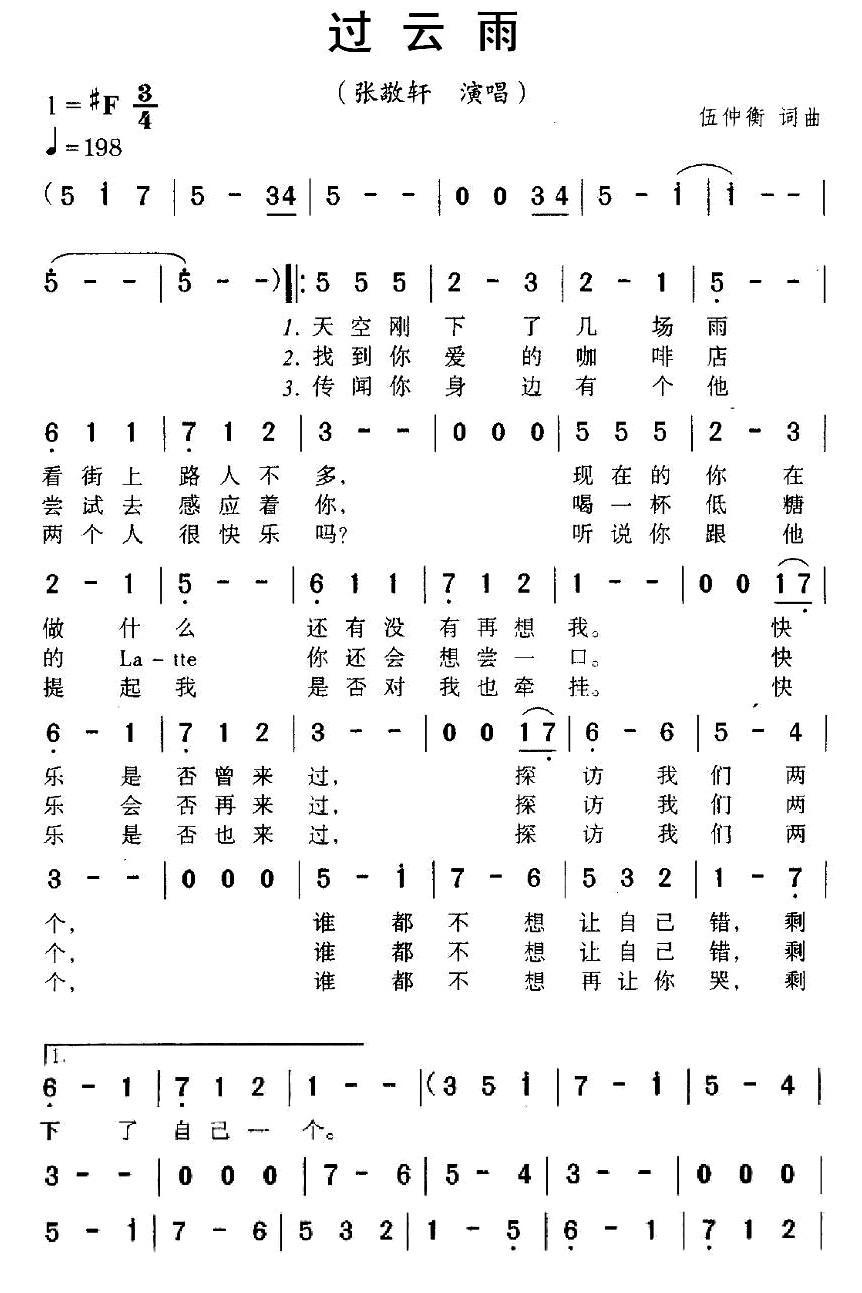 过云雨
(张敬轩 演唱)
1=♯F 3/4
伍仲衡 词曲
♩=198
(5 1̇ 7 | 5 - 34 | 5 - - | 0 0 34 | 5 - 1̇ | 1̇ - - |
5 - - | 5 - -) ‖: 5 5 5 | 2 - 3 | 2 - 1 | 5̣ - - |
1. 天空刚下了几场雨
2. 找到你爱的咖啡店
3. 传闻你身边有个他
6̣ 1 1 | 7̣ 1 2 | 3 - - | 0 0 0 | 5 5 5 | 2 - 3 |
看街上路人不多, 现在的你在
尝试去感应着你, 喝一杯低糖
两个人很快乐吗? 听说你跟他
2 - 1 | 5̣ - - | 6̣ 1 1 | 7̣ 1 2 | 1 - - | 0 0 17̣ |
做什么 还有没有再想我。 快
的La-tte 你还会想尝一口。 快
提起我 是否对我也牵挂。 快
6̣ - 1 | 7̣ 1 2 | 3 - - | 0 0 17̣ | 6̣ - 6 | 5 - 4 |
乐是否曾来过, 探访我们两
乐会否再来过, 探访我们两
乐是否也来过, 探访我们两
3 - - | 0 0 0 | 5 - 1̇ | 7 - 6 | 5 3 2 | 1 - 7̣ |
个, 谁都不想让自己错, 剩
个, 谁都不想让自己错, 剩
个, 谁都不想再让你哭, 剩
1.
6̣ - 1 | 7̣ 1 2 | 1 - - | (3 5 1̇ | 7 - 1̇ | 5 - 4 |
下了自己一个。
3 - - | 0 0 0 | 7 - 6 | 5 - 4 | 3 - - | 0 0 0 |
5 - 1̇ | 7 - 6 | 5 3 2 | 1 - 5̣ | 6̣ - 1 | 7̣ 1 2 |